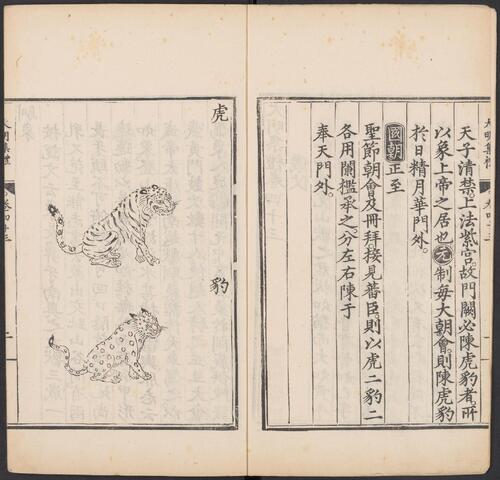 天子清禁上法紫宮故門闕必陳虎豹者所
以象上帝之居也元制每大朝會則陳虎豹
於日精月華門外
國朝正至
聖節朝會及冊拜接見蕃臣則以虎二豹二
各用闌檻承之分左右陳于
奉天門外
虎
豹
大明集禮
卷四十三
二